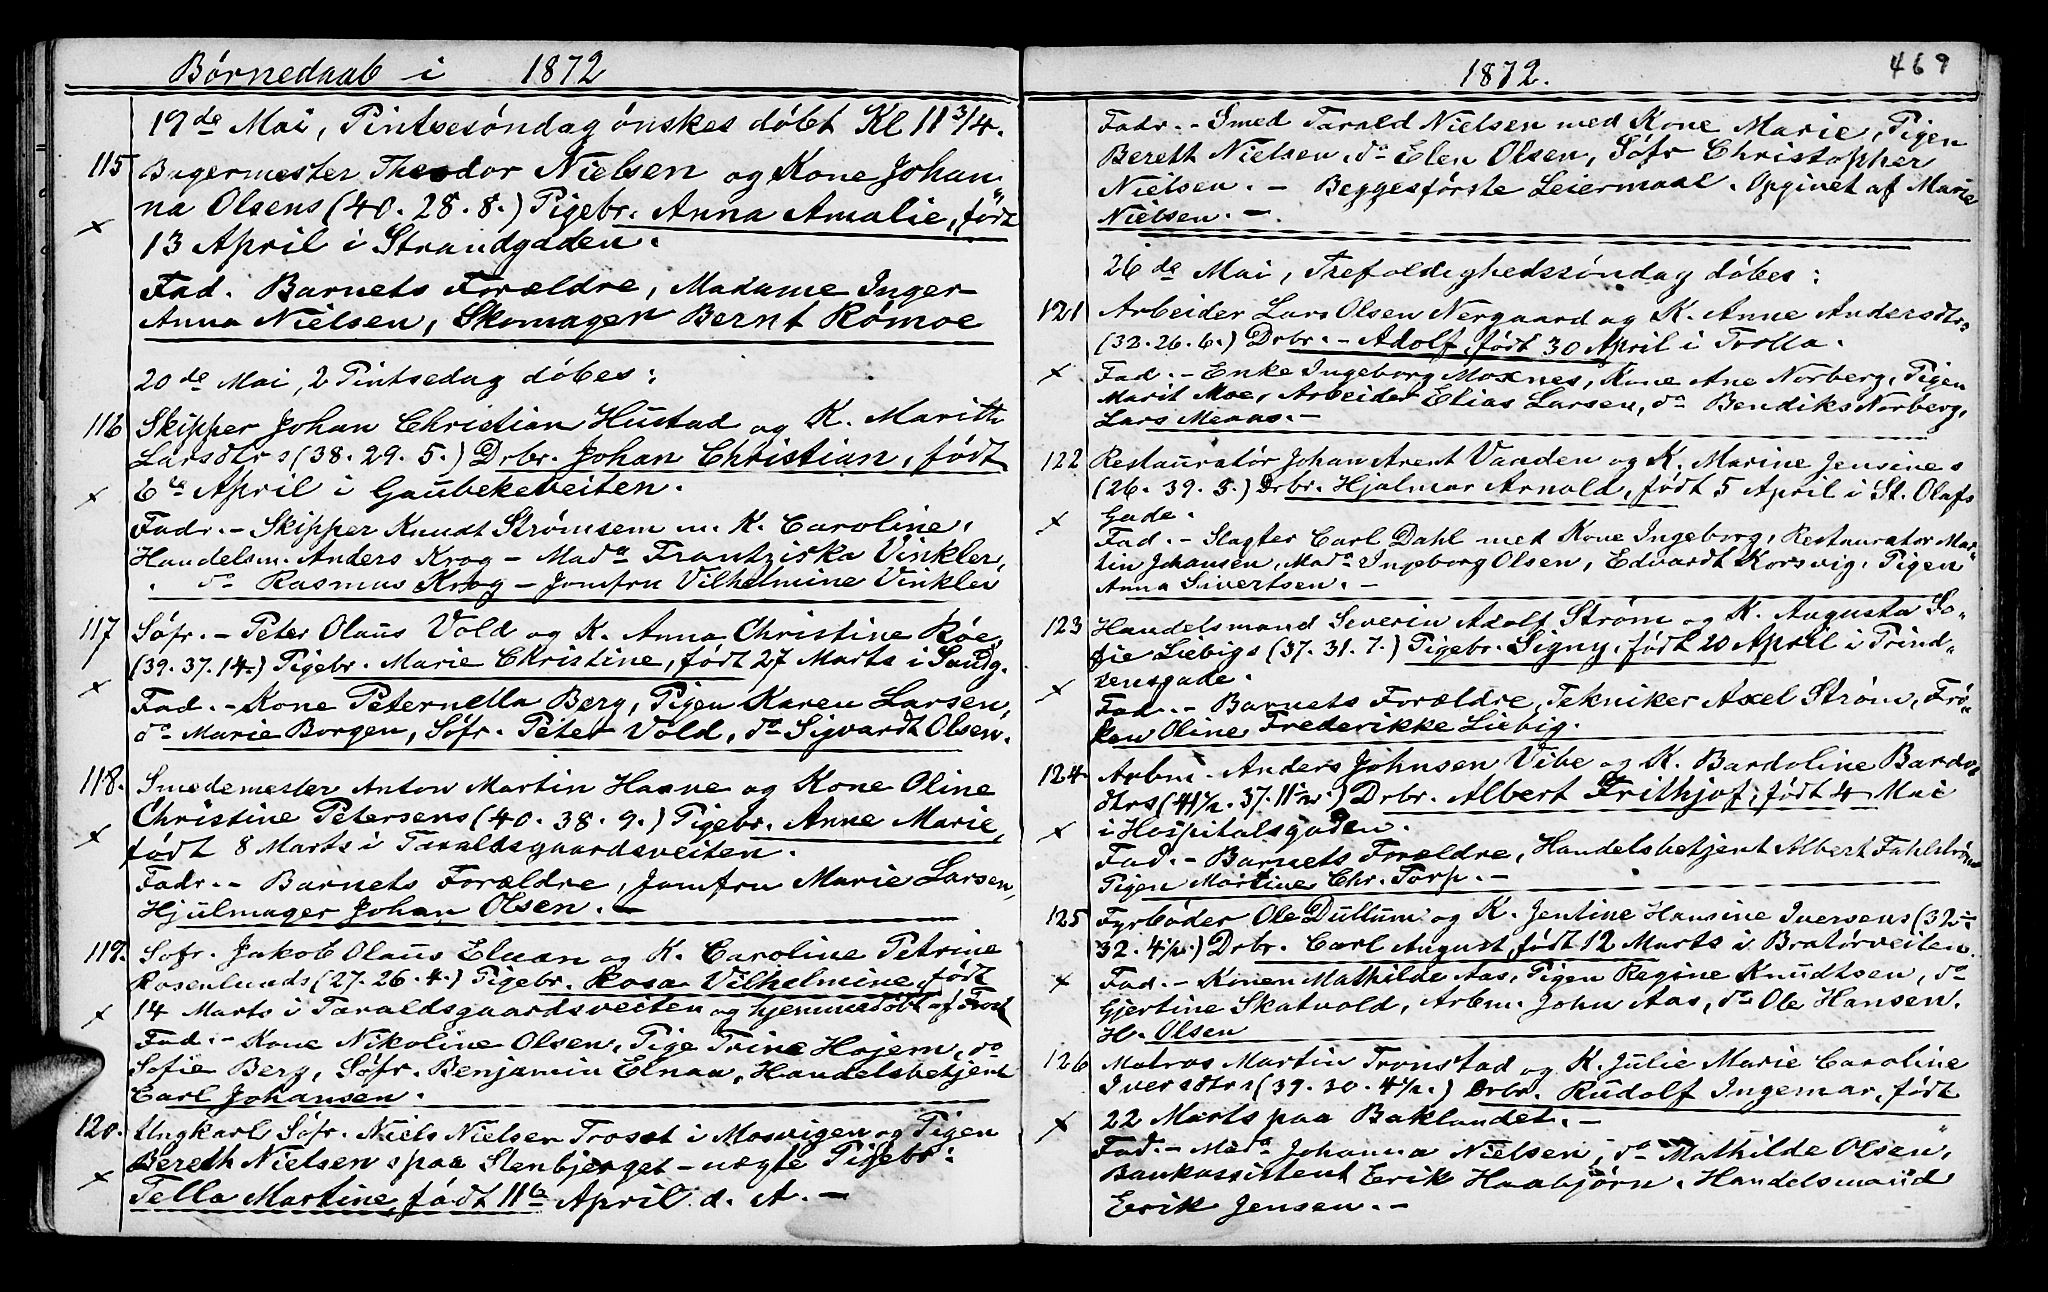 Børnedaab i 1872
19de Mai, Pintsesöndag önskes döbt Kl 11 3/4.
115 Bagermester Theodor Nielsen og Kone Johan
na Olsens (40. 28. 8.) Pigebr. Anna Amalie, födt
13 April i Strandgaden.
Fad. Barnets Forældre, Madame Inger
Anna Nielsen, Skomager Bernt Römoe
20de Mai, 2 Pintsedag döbes:
116 Skipper Johan Christian Hustad og K. Maritt
Larsdtrs (38. 29. 5.) Drbr. Johan Christian, födt
6te April i Gaubekveiten.
Fadr. - Skipper Knudt Strömsem m. K. Caroline,
Handelsm. Anders Krog - Mada Frantziska Vinkler,
do Rasmus Krog - Jomfru Vilhelmine Vinkler
117 Söfr. - Peter Olaus Vold og K. Anna Christine Röe,
(39. 37. 14.) Pigebr. Marie Christine, födt 27 Marts i Sandg.
Fad. - Kone Peternella Berg, Pigen Karen Larsen,
do Marie Borgen, Söfr. Peter Vold, do Sigvardt Olsen.
118. Smedemester Anton Martin Haave og Kone Oline
Christine Petersens (40. 38. 9.) Pigebr. Anne Marie,
födt 8 Marts i Taraldsgaardsveiten.
Fadr. - Barnets Forældre, Jomfru Marie Larsen,
Hjulmager Johan Olsen. -
119. Söfr. Jakob Olaus Elnan og K. Caroline Petrine
Rosenlunds (27. 26. 4.) Pigebr. Rosa Vilhelmine, födt
14 Marts i Taraldsgaardsveiten og hjemmedöbt af Prost
Fad. - Kone Nikoline Olsen, Pige Trine Hojem, do
Sofie Berg, Söfr. Benjamin Elnan, Handelsbetjent
Carl Johansen.
120. Ungkarl Söfr. Niels Nielsen Trosst i Mosvigen og Pigen
Bereth Nielsens paa Stenbjerget - uægte Pigebr:
Tella Martine, födt 11te April d. A. -
1872. 469
Fadr. - Smed Tarald Nielsen med Kone Marie, Pigen
Bereth Nielsen, do Elen Olsen, Söfr Christopher
Nielsen. - Beggesförste Leiermaal. Opgivet af Marie
Nielsen. -
26de Mai, Trefoldighedssöndag döbes:
121 Arbeider Lars Olsen Nergaard og K. Anne Andersdtrs
(32. 26. 6.) Drbr. - Adolf, födt 30 April i Torlla.
Fad. - Enke Ingeborg Moxnes, Kone Ane Norberg, Pigen
Marit Moe, Arbeider Elias Larsen, do Bendiks Norberg,
Lars Meaas. -
122 Restauratør Johan Arent Vanden og K. Marine Jensines
(26. 39. 5.) Drbr. Hjalmar Arnold, födt 5 April i St. Olafs
Gade.
Fad. - Slagter Carl Dahl med Kone Ingeborg, Restauratør Mar-
tin Johansen, Mada Ingeborg Olsen, Edvardt Korsvig, Pigen
Anna Sivertsen. -
123 Handelsmand Severin Adolf Strøm og K. Augusta So-
fie Liebigs (37. 31. 7.) Pigebr. Signy, födt 20 April i Prind-
sensgade.
Fad. - Barnets Forældre, Tekniker Axel Strøm, Frø-
ken Oline Frederikke Liebig.
124. Arbm. Anders Johnsen Vibe og K. Bardoline Bardo-
dtrs (41 1/2. 37. 11 1/2.) Drbr. Albert Frithjof, födt 4 Mai
i Hospitalsgaden.
Fad. - Barnets Forældre, Handelsbetjent Albert Fahlstrøm
Pigen Martine Chr. Torp. -
125 Fyrbøder Ole Dullum og K. Jentine Hansine Iversens (32 -
32. 4 1/2.) Drbr. Carl August, födt 12 Marts i Bratörveiten.
Fad. - Konen Mathilde Aas, Pigen Regine Knudtsen, do
Gjertine Skatvold, Arbm. John Aas, do Ole Hansen.
H. Olsen
126 Matros Martin Tronstad og K. Julie Marie Caroline
Iversdtrs (39. 30. 4 1/2.) Drbr. Rudolf Ingemar, födt
22 Marts paa Baklandet. -
Fad. - Mada Johanna Nielsen, do Mathilde Olsen,
Bankassistent Erik Haabjörn, Handelsmand
Erik Jensen. -